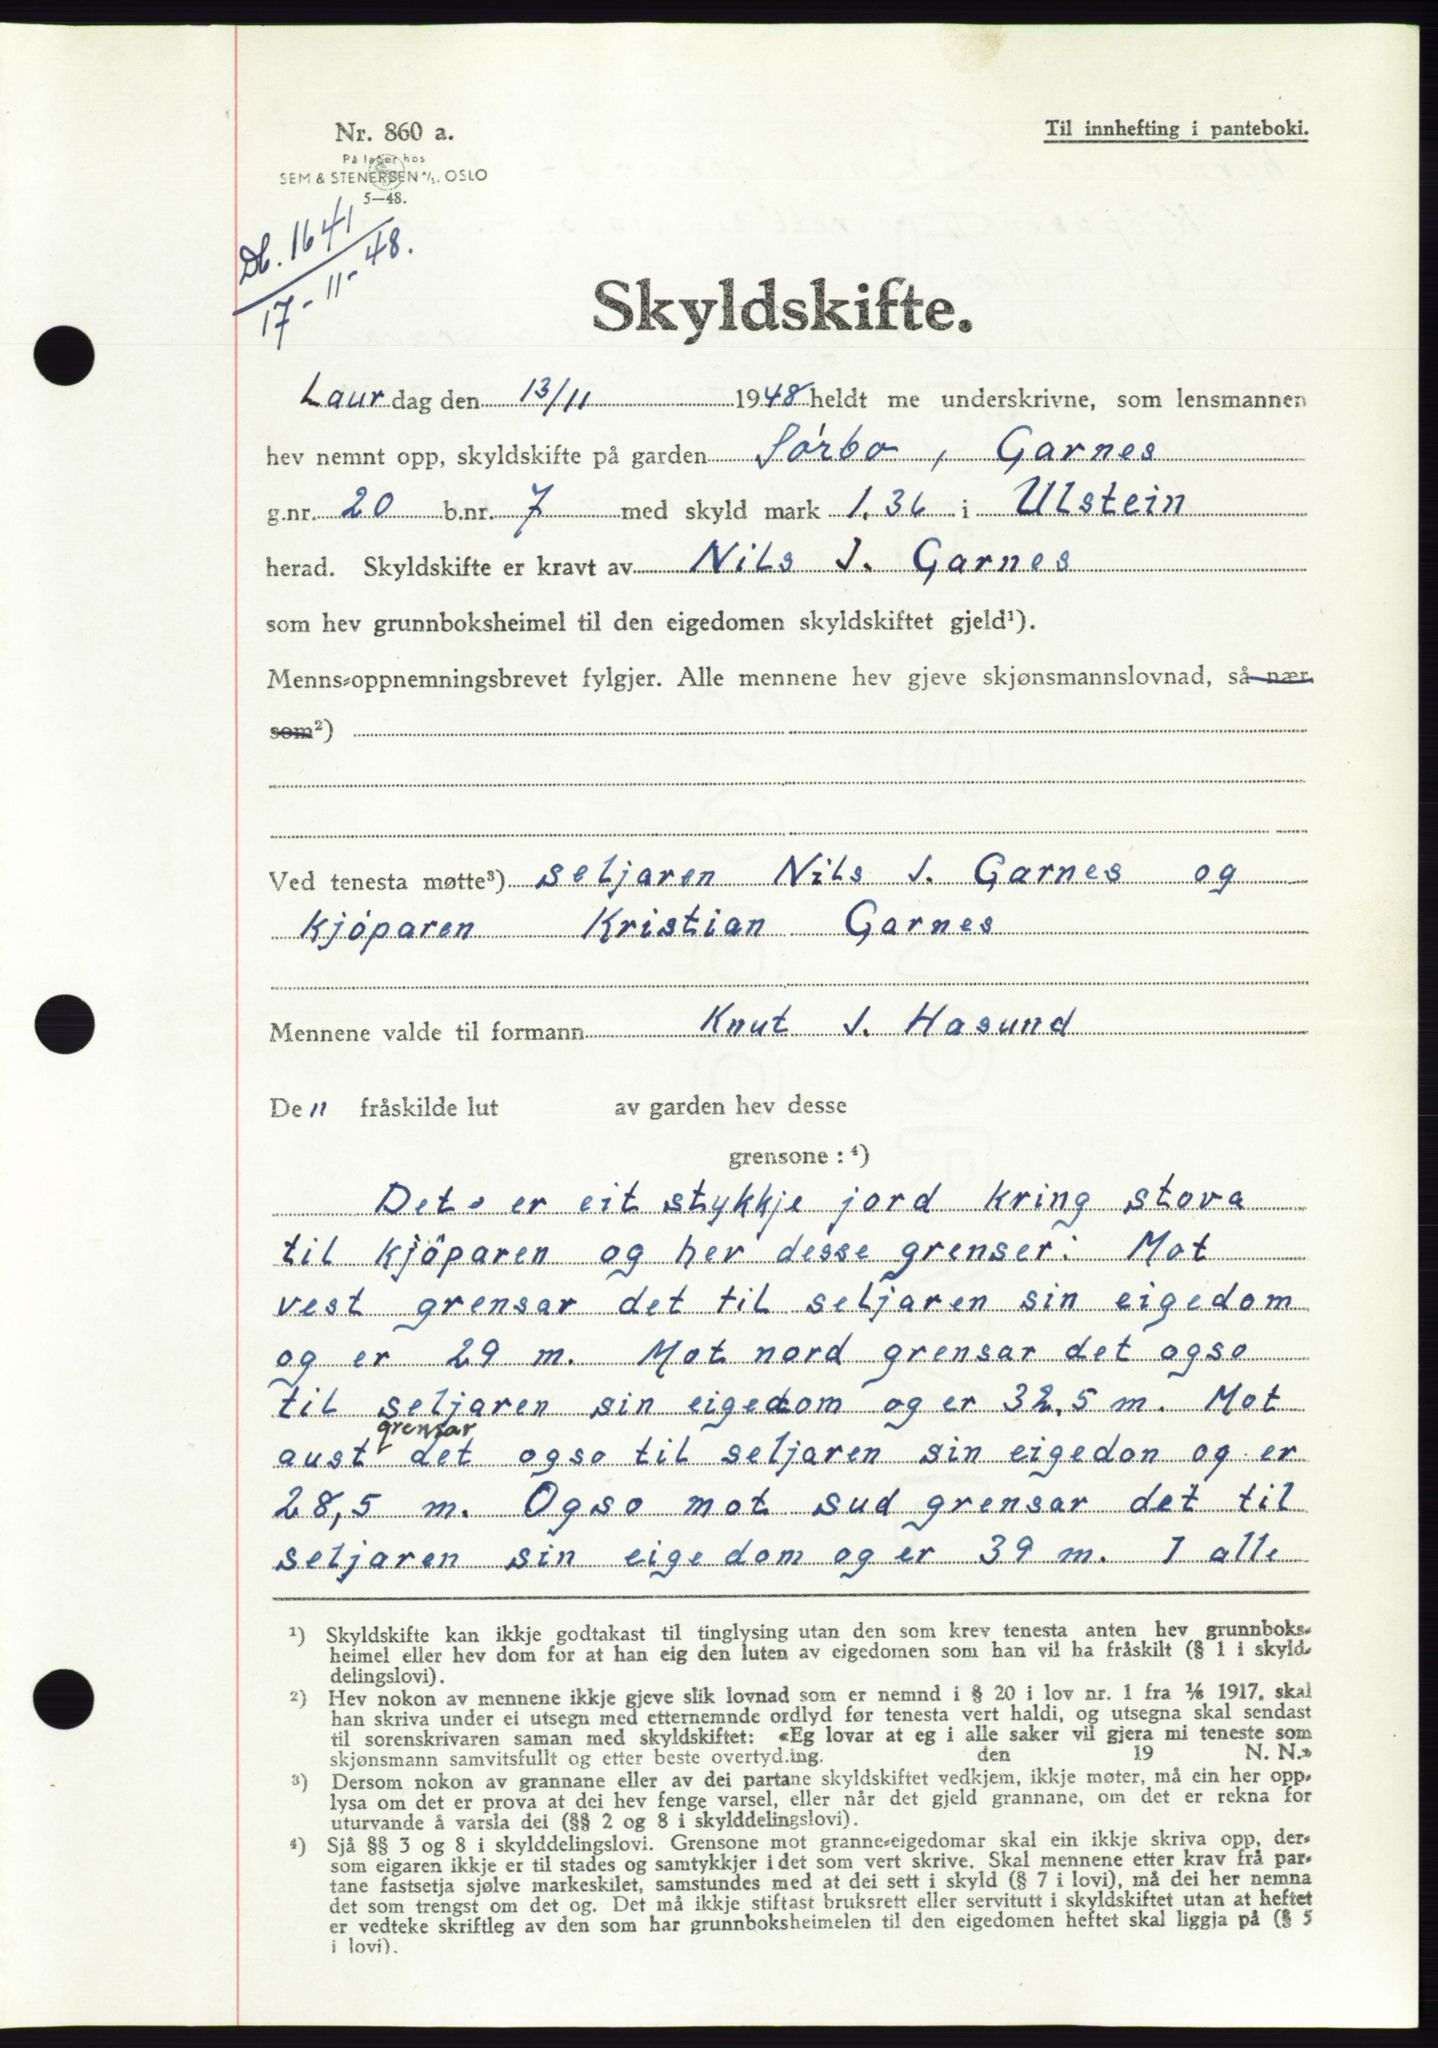 Nr. 860 a.
Til innhefting i panteboki.
På lager hos
SEM & STENERSEN A/S, OSLO
5—48.
Db. 1641
17-11-48.
Skyldskifte.
Laurdag den 13/11 1948 heldt me underskrivne, som lensmannen
hev nemnt opp, skyldskifte på garden Sórbo, Garnes
g.nr. 20 b.nr. 7 med skyld mark 1,36 i Ulstein
herad. Skyldskifte er kravt av Nils J. Garnes
som hev grunnboksheimel til den eigedomen skyldskiftet gjeld¹).
Menns-oppnemningsbrevet fylgjer. Alle mennene hev gjeve skjønsmannslovnad, så nær
som²)
Ved tenesta møtte³) seljaren Nils J. Garnes og
kjóparen Kristian Garnes
Mennene valde til formann Knut J. Hasund
De n fråskilde lut av garden hev desse
grensone : ⁴)
Det er eit stykkje jord kring stova
til kjóparen og her desse grenser: Mot
vest grensar det til seljaren sin eigedom
og er 29 m. Mot nord grensar det ogso
til seljaren sin eigedom og er 32,5 m. Mot
grensar
aust det ogso til seljaren sin eigedon og er
28,5 m. Ogso mot sud grensar det til
seljaren sin eigedom og er 39 m. I alle
¹) Skyldskifte kan ikkje godtakast til tinglysing utan den som krev tenesta anten hev grunnboks-
heimel eller hev dom for at han eig den luten av eigedomen som han vil ha fråskilt (§ 1 i skyld-
delingslovi).
²) Hev nokon av mennene ikkje gjeve slik lovnad som er nemnd i § 20 i lov nr. 1 fra 1/6 1917, skal
han skriva under ei utsegn med etternemnde ordlyd før tenesta vert haldi, og utsegna skal sendast
til sorenskrivaren saman med skyldskiftet: «Eg lovar at eg i alle saker vil gjera mi teneste som
skjønsmann samvitsfullt og etter beste overtyd.ing. den 19 N. N.»
³) Dersom nokon av grannane eller av dei partane skyldskiftet vedkjem, ikkje møter, må ein her opp-
lysa om det er prova at dei hev fenge varsel, eller når det gjeld grannane, om det er rekna for
uturvande å varsla dei (§§ 2 og 8 i skylddelingslovi).
⁴) Sjå §§ 3 og 8 i skylddelingslovi. Grensone mot granne-eigedomar skal ein ikkje skriva opp, der-
som eigaren ikkje er til stades og samtykkjer i det som vert skrive. Skal mennene etter krav frå par-
tane fastsetja sjølve markeskilet, samstundes med at dei sett i skyld (§ 7 i lovi), må dei her nemna
det som trengst om det og. Det må ikkje stiftast bruksrett eller servitutt i skyldskiftet utan at heftet
er vedteke skriftleg av den som har grunnboksheimelen til den eigedomen heftet skal liggja på (§ 5
i lovi).